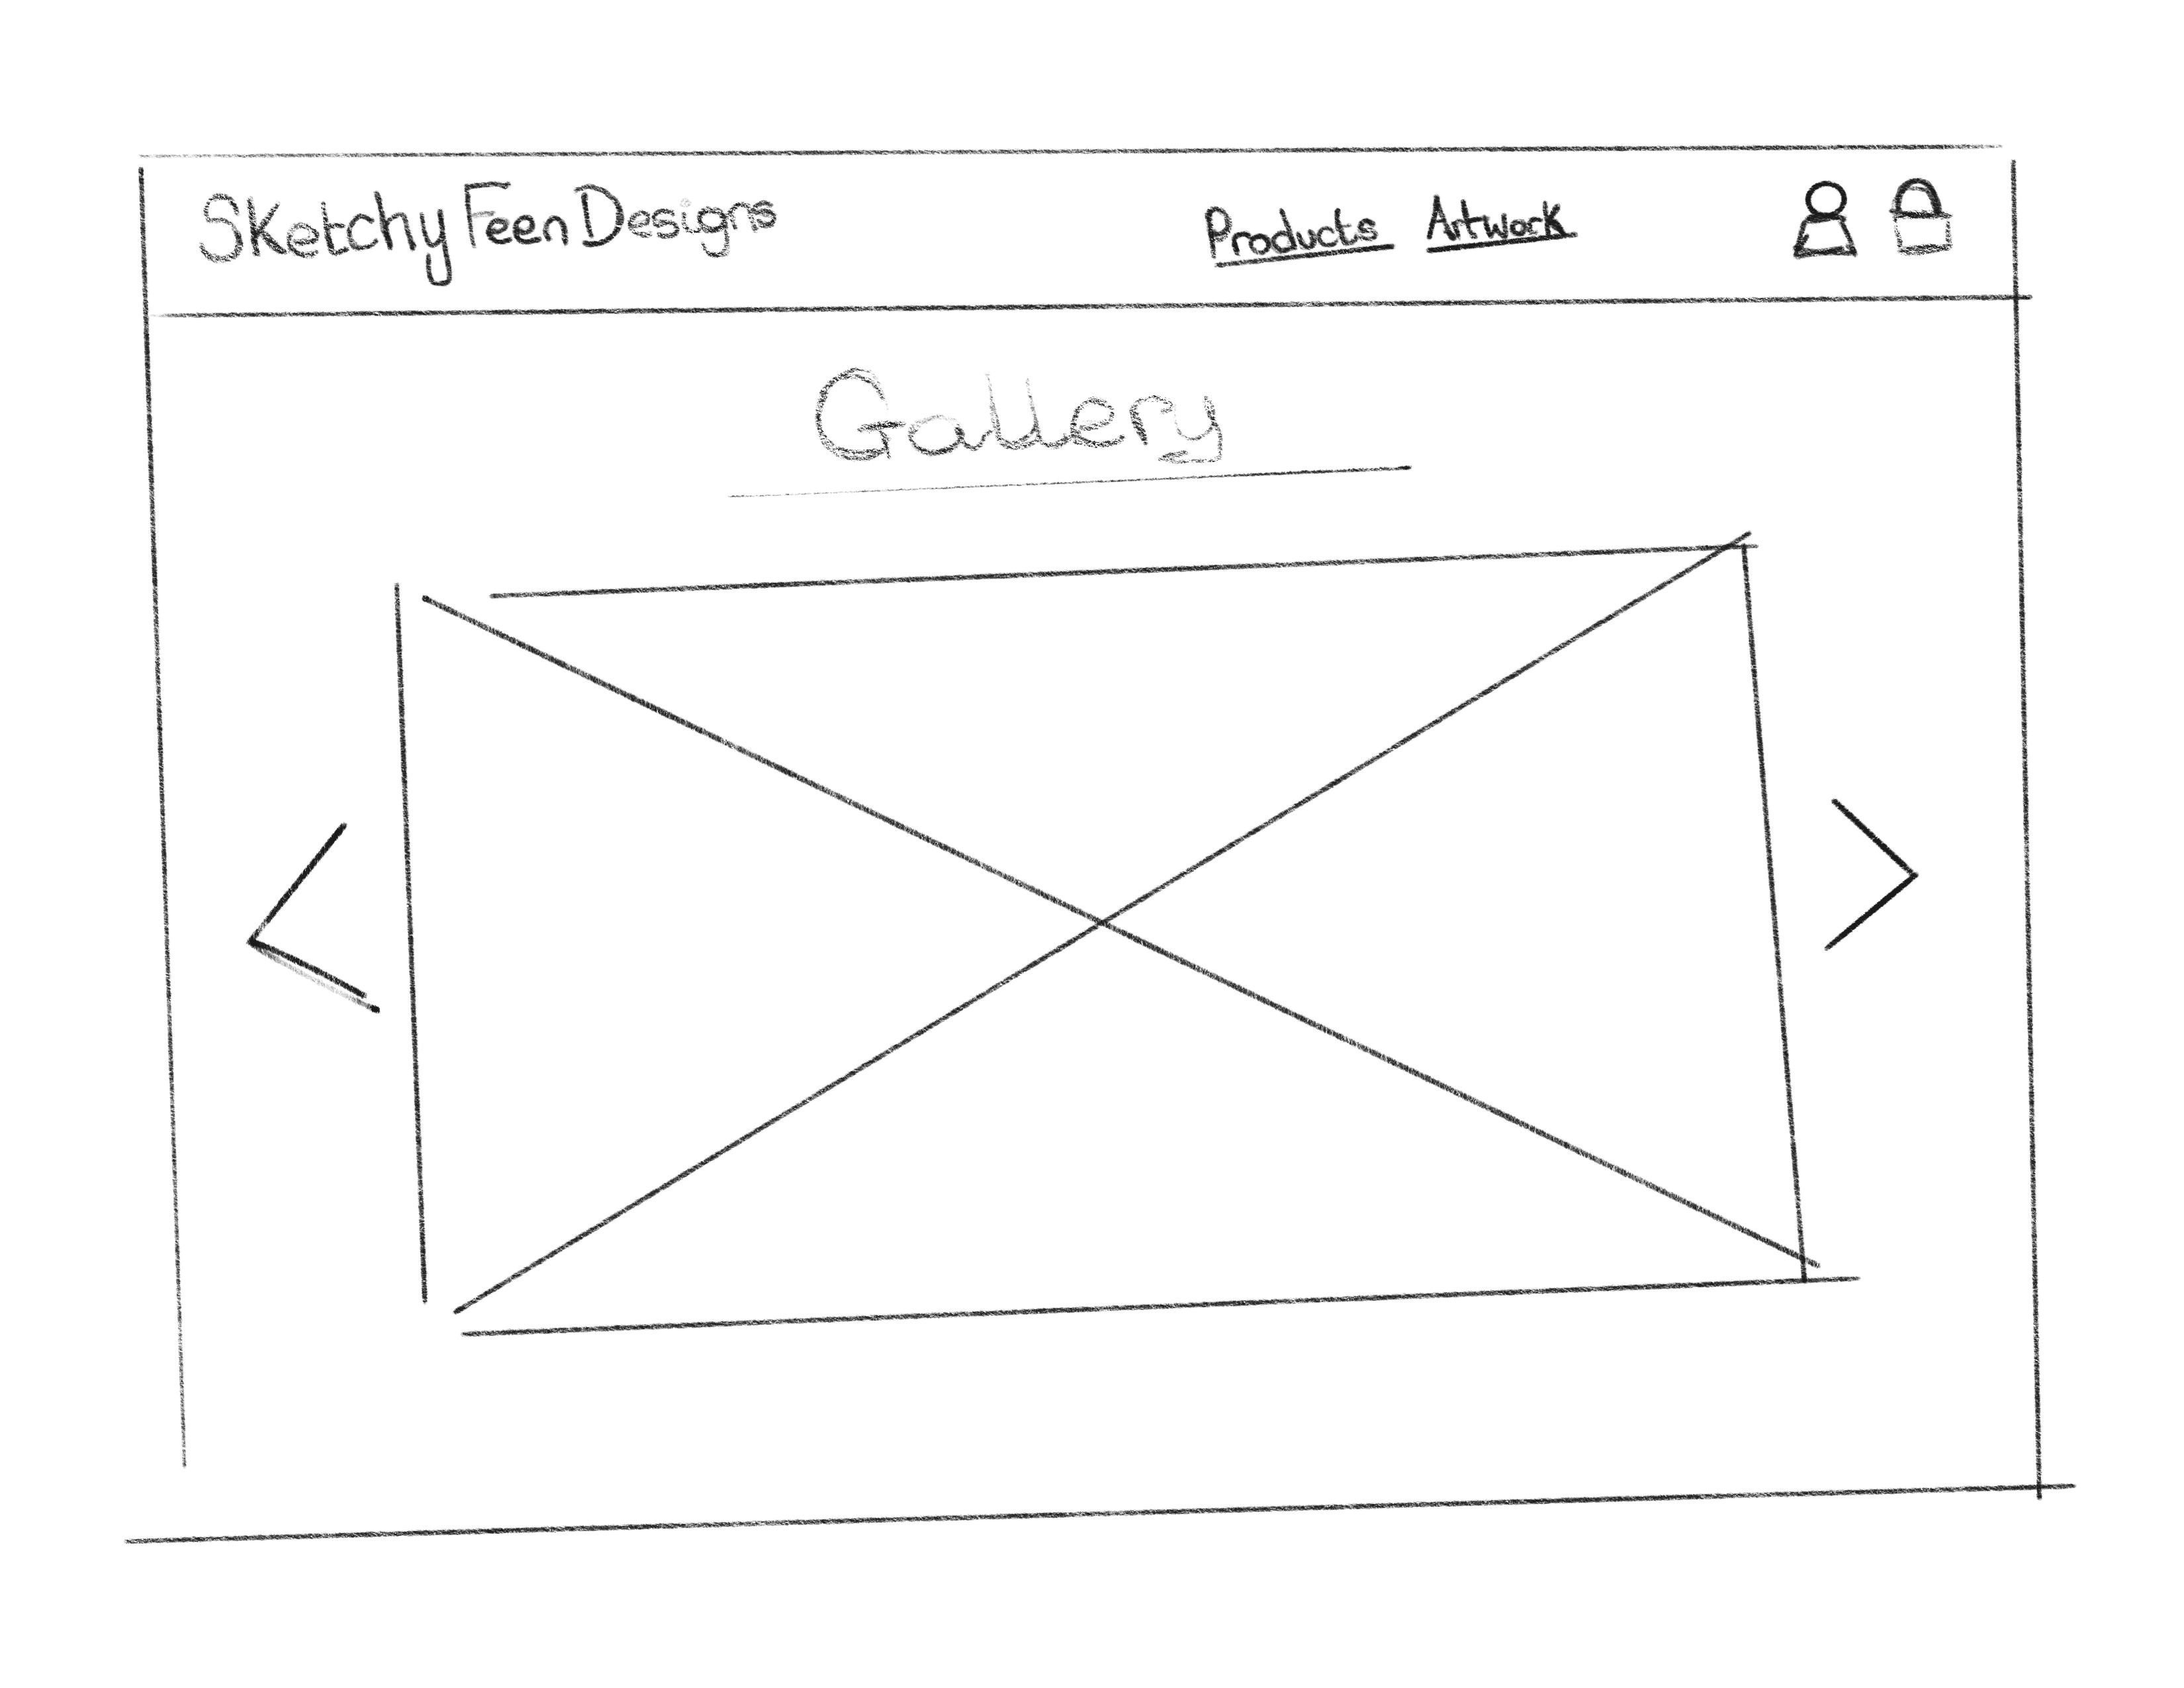 Sketchy Feen Designs
Products Artwork
Gallery